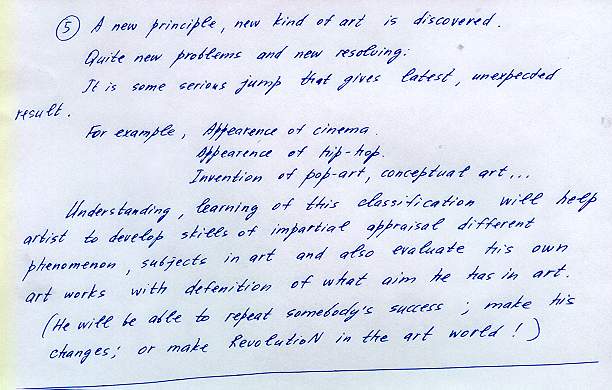 ⑤ A new principle, new kind of art is discovered.
Quite new problems and new resolving.
It is some serious jump that gives latest, unexpected
result.
For example, Appearence of cinema.
Appearence of hip-hop.
Invention of pop-art, conceptual art,...
Understanding, learning of this classification will help
artist to develop skills of impartial appraisal different
phenomenon, subjects in art and also evaluate his own
art works with defenition of what aim he has in art.
(He will be able to repeat somebody's success; make his
changes; or make RevolutioN in the art world!)